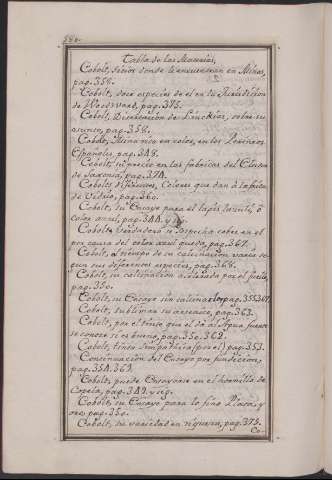 580.
Tabla de las Materias,
Cobolt, sitios donde le encuentran en Minas,
pag. 358.
Cobolt, doce especies de el en la Jurisdiction
de Woodward, pag. 375.
Cobolt, Disertacion de Linckius, sobre su
asunto, pag. 358.
Cobolt, Mina rica en color, en los Pirineos
Españoles, pag. 348.
Cobolt, su precio en las fabricas del Elector
de Saxonia, pag. 374.
Cobolts diferentes, Colores que dan à la pasta
de Vidrio, pag. 360.
Cobolt, su Ensaye para el lapis lazuli, ó
color azul, pag. 344. y sig.
Cobolt verdadero si sospecha cobre en el
por causa del color azul queda, pag. 367.
Cobolt, el tiempo de su calcinacion varia se-
gun sus diferentes especies, pag. 368.
Cobolt, su calcinacion acelerada por el fuelle,
pag. 350.
Cobolt, su Ensaye sin calcinarlo, pag. 355.367.
Cobolt, sublima su arsenico, pag. 363.
Cobolt, por el tinte que el dà al Agua fuerte
se conoce si es bueno, pag. 350. 362.
Cobolt, tinta Simpathica (por el) pag. 353.
Continuacion del Ensaye por fundicion,
pag. 354. 369.
Cobolt, puede Ensayarse en el hornillo de
Copela, pag. 343. y sig.
Cobolt, su Ensaye para lo fino Plata, y
oro, pag. 350.
Cobolt, su variedad en riqueza, pag. 375.
Co-